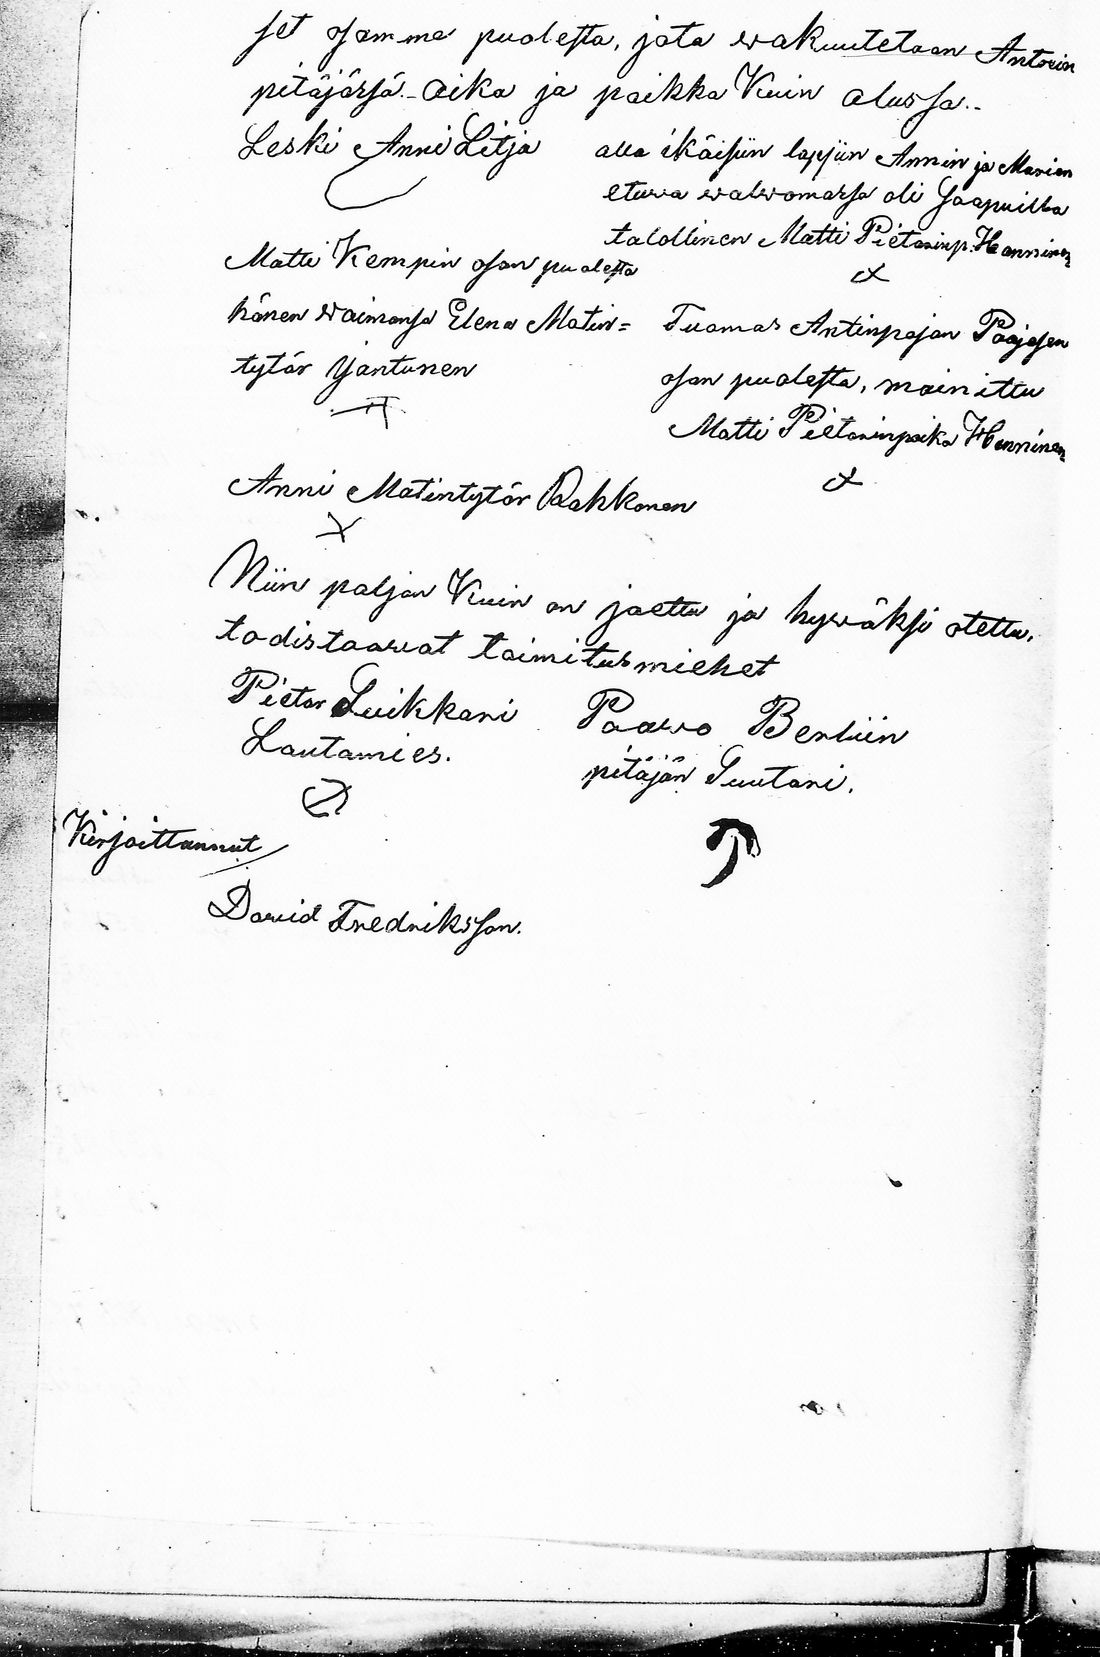 set osamme puolesta, jota wakuutetaan Antrein
pitäjässä. aika ja paikka Kuin alussa.
Leski Anni Litja
alla ikäisiin lapsiin Annin ja Marian
etuva walwomassa oli saapuilla
talollinen Matti Pietarinp. Hanninen
Matti Kempin osan puolesta
hänen waimonsa Elena Matin=
tytär Jäntunen
Tuomas Antinpojan Paajasen
osan puolesta, mainittu
Matti Pietarinpoika Hanninen
Anni Matintytär Rahkonen
Niin paljon Kuin on jaettu ja hywäksi otettu,
todistaawat toimitusmiehet
Pietar Suikkari
Lautamies.
Paawo Berliin
pitäjän Suutari.
Kirjoittannut
David Fredriksson.